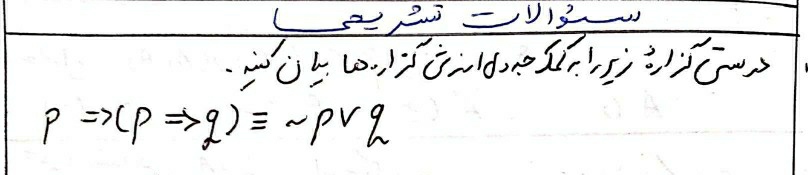 سئوالات تشریحی
درستی گزارهٔ زیر را به کمک جدول ارزش گزاره ها بیان کنید.
p => (p => q) ≡ ~p ∨ q